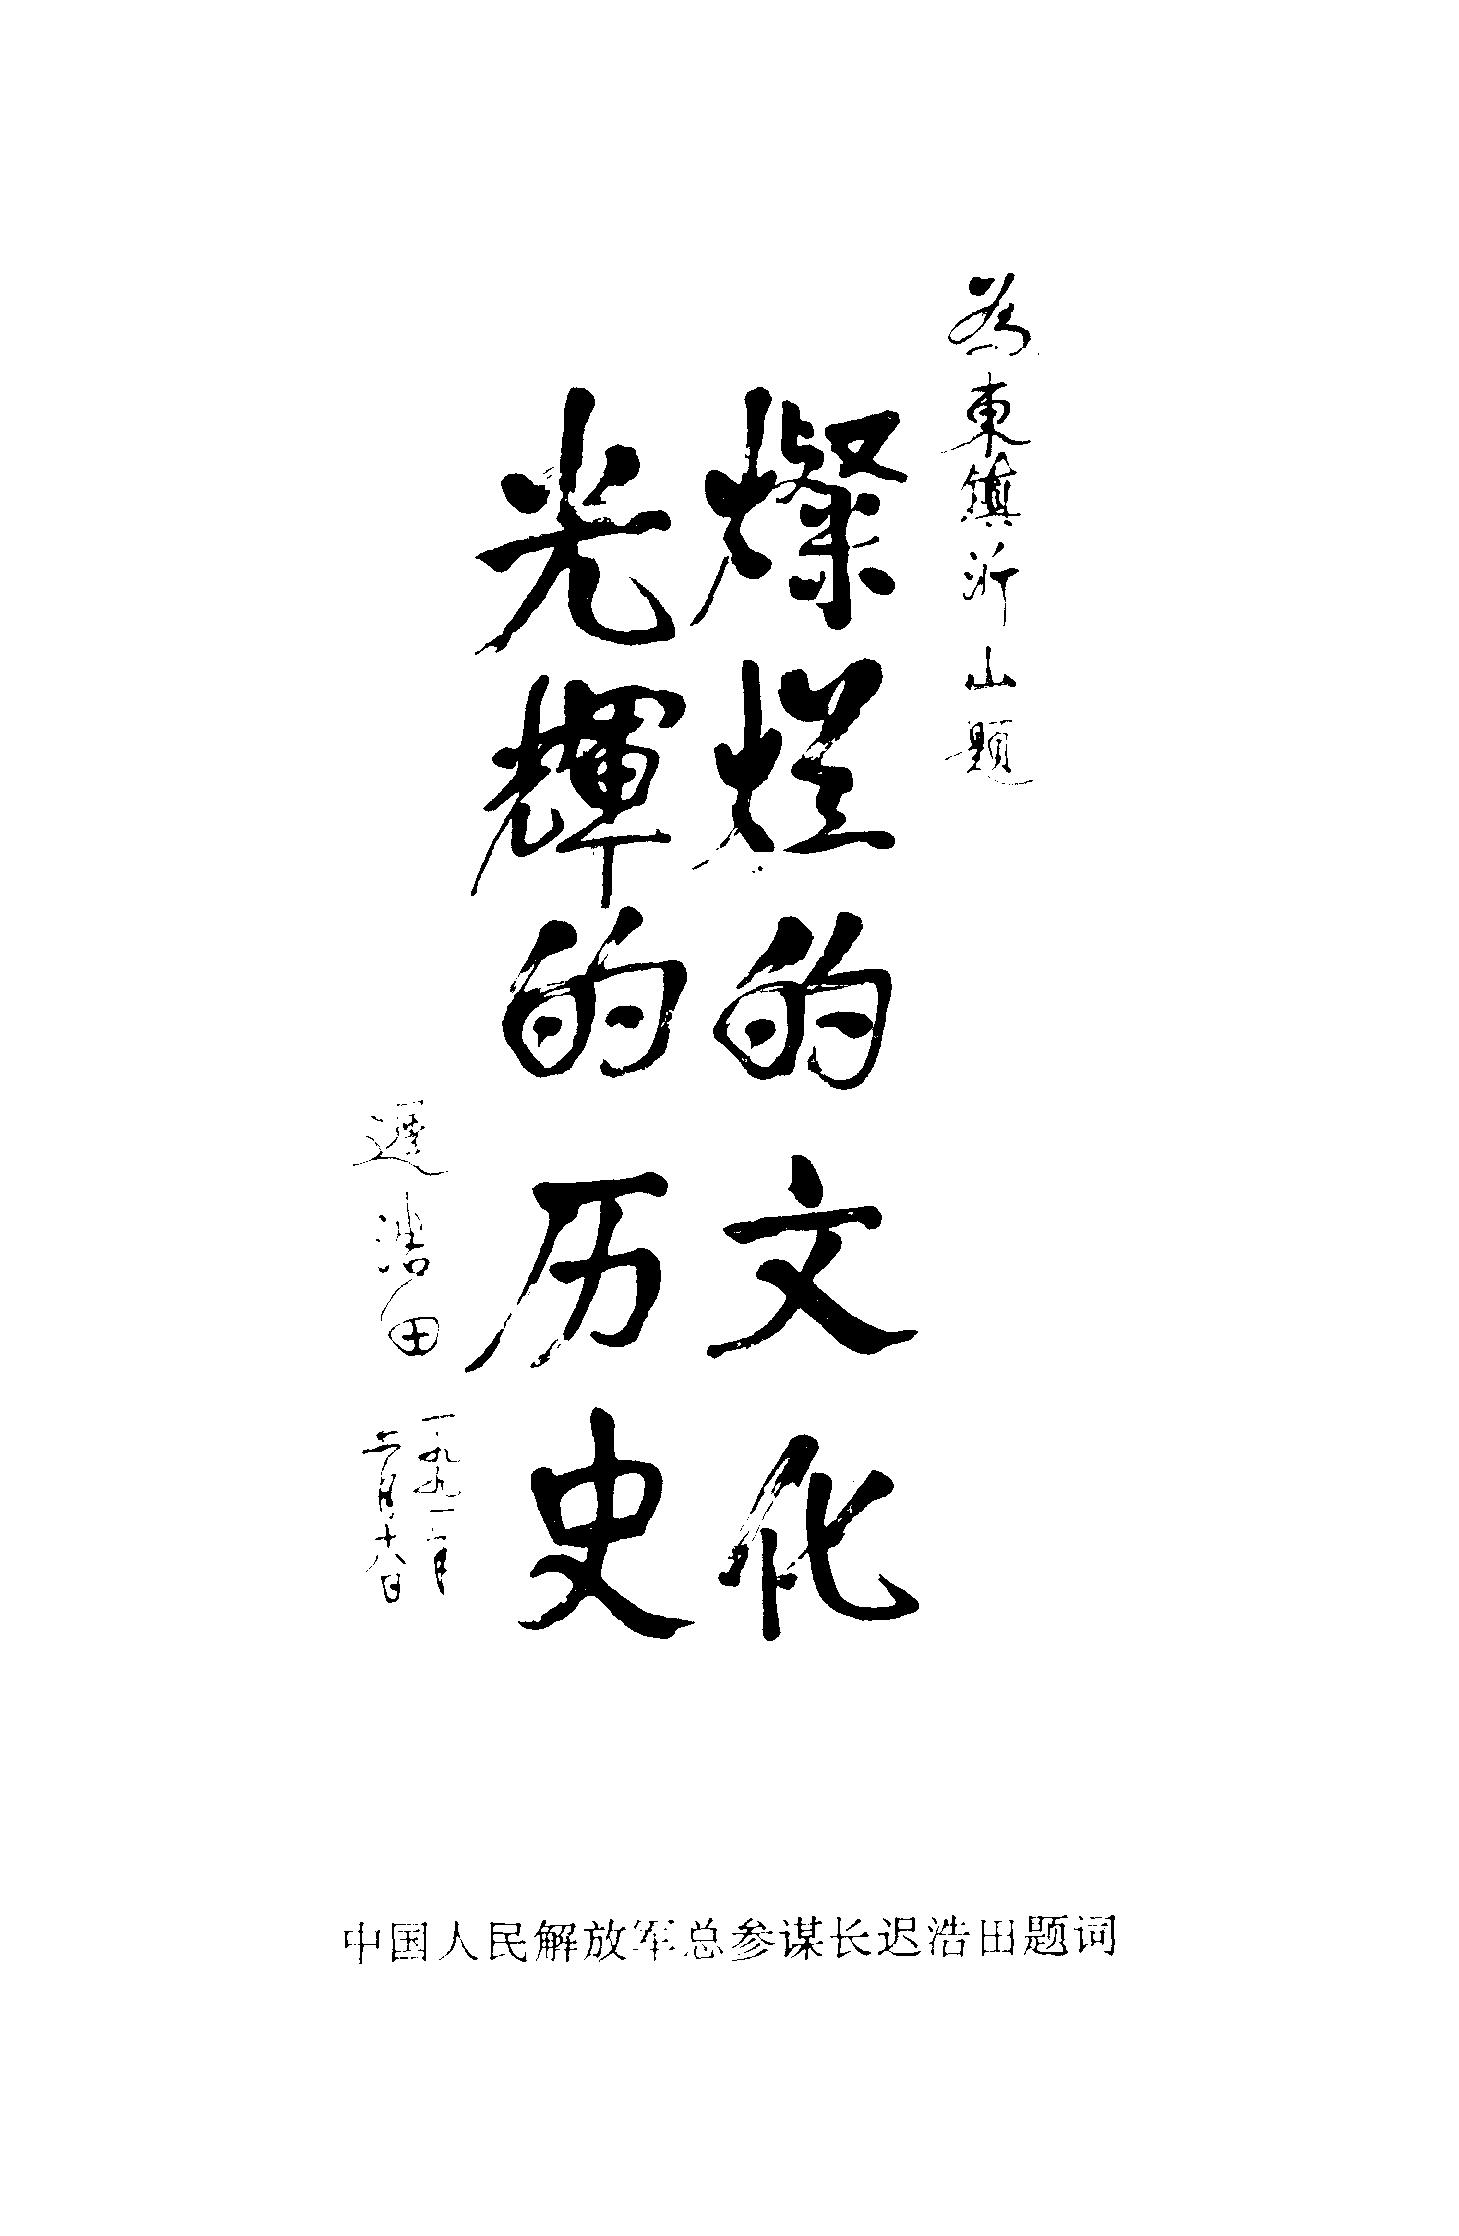 為東鎮沂山題
燦烂的文化
光輝的历史
遲浩田
一九九一年
月十八日
中国人民解放军总参谋长迟浩田题词